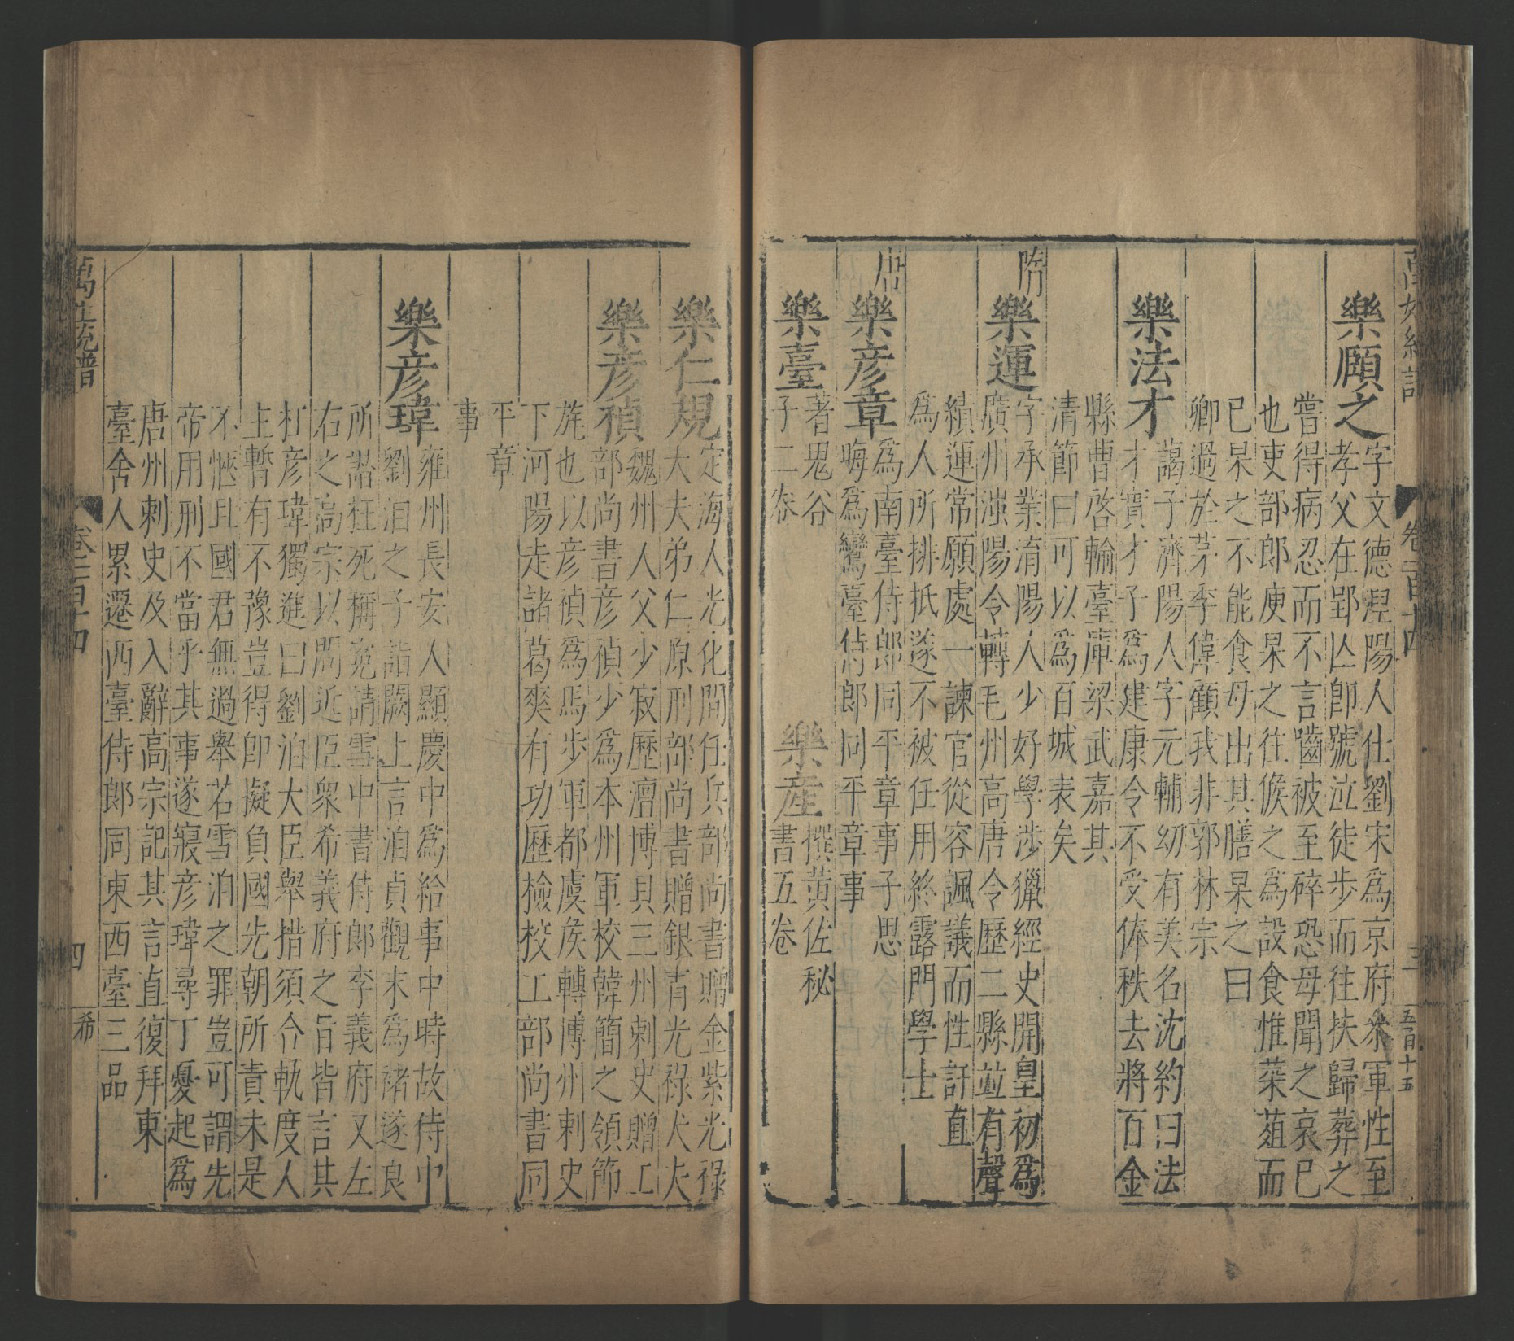 樂頤之字文德湼陽人仕劉宋爲京府參軍性至
孝父在郢亾卽號泣徒步而往扶歸葬之
嘗得病忍而不言嚙被至碎恐母聞之哀已
也吏部郎庾杲之往候之爲設食惟菜葅而
已杲之不能食母出其膳杲之曰
卿過於茅季偉顧我非郭林宗
樂法才字元輔幼有美名沈約曰法
才實才子爲建康令不受俸秩去將百金
縣曹啓輸臺庫梁武嘉其
清節曰可以爲百城表矣
隋
樂運字承業淯陽人少好學涉獵經史開皇初爲
廣州滍陽令轉毛州高唐令歷二縣並有聲
績運常願處一諫官從容諷議而性訐直
爲人所排抵遂不被任用終露門學士
唐
樂彥章爲南臺侍郎同平章事子思
晦爲鸞臺侍郎同平章事
樂臺著鬼谷
子二卷
樂産撰黄佐秘
書五卷
樂仁規定海人光化間任兵部尚書贈金紫光祿
大夫弟仁原刑部尚書贈銀青光祿大夫
樂彥禎魏州人父少寂歷澶博貝三州刺史贈工
部尚書彥禎少爲本州軍校韓簡之領節
旄也以彥禎爲馬步軍都虞矦轉博州刺史
下河陽走諸葛爽有功歷檢校工部尚書同
平章
事
樂彥瑋雍州長安人顯慶中爲給事中時故侍中
劉洎之子詣闕上言洎貞觀末爲禇遂良
所譖枉死稱寃請雪中書侍郎李義府又左
右之高宗以問近臣衆希義府之旨皆言其
枉彥瑋獨進曰劉洎大臣舉措須合軌度人
主暫有不豫豈得卽擬負國先朝所責未是
不愜且國君無過舉若雪洎之罪豈可謂先
帝用刑不當乎其事遂寢彥瑋尋丁憂起爲
唐州刺史及入辭高宗記其言直復拜東
臺舍人累遷西臺侍郎同東西臺三品
萬姓統譜
卷一百十四
四
希